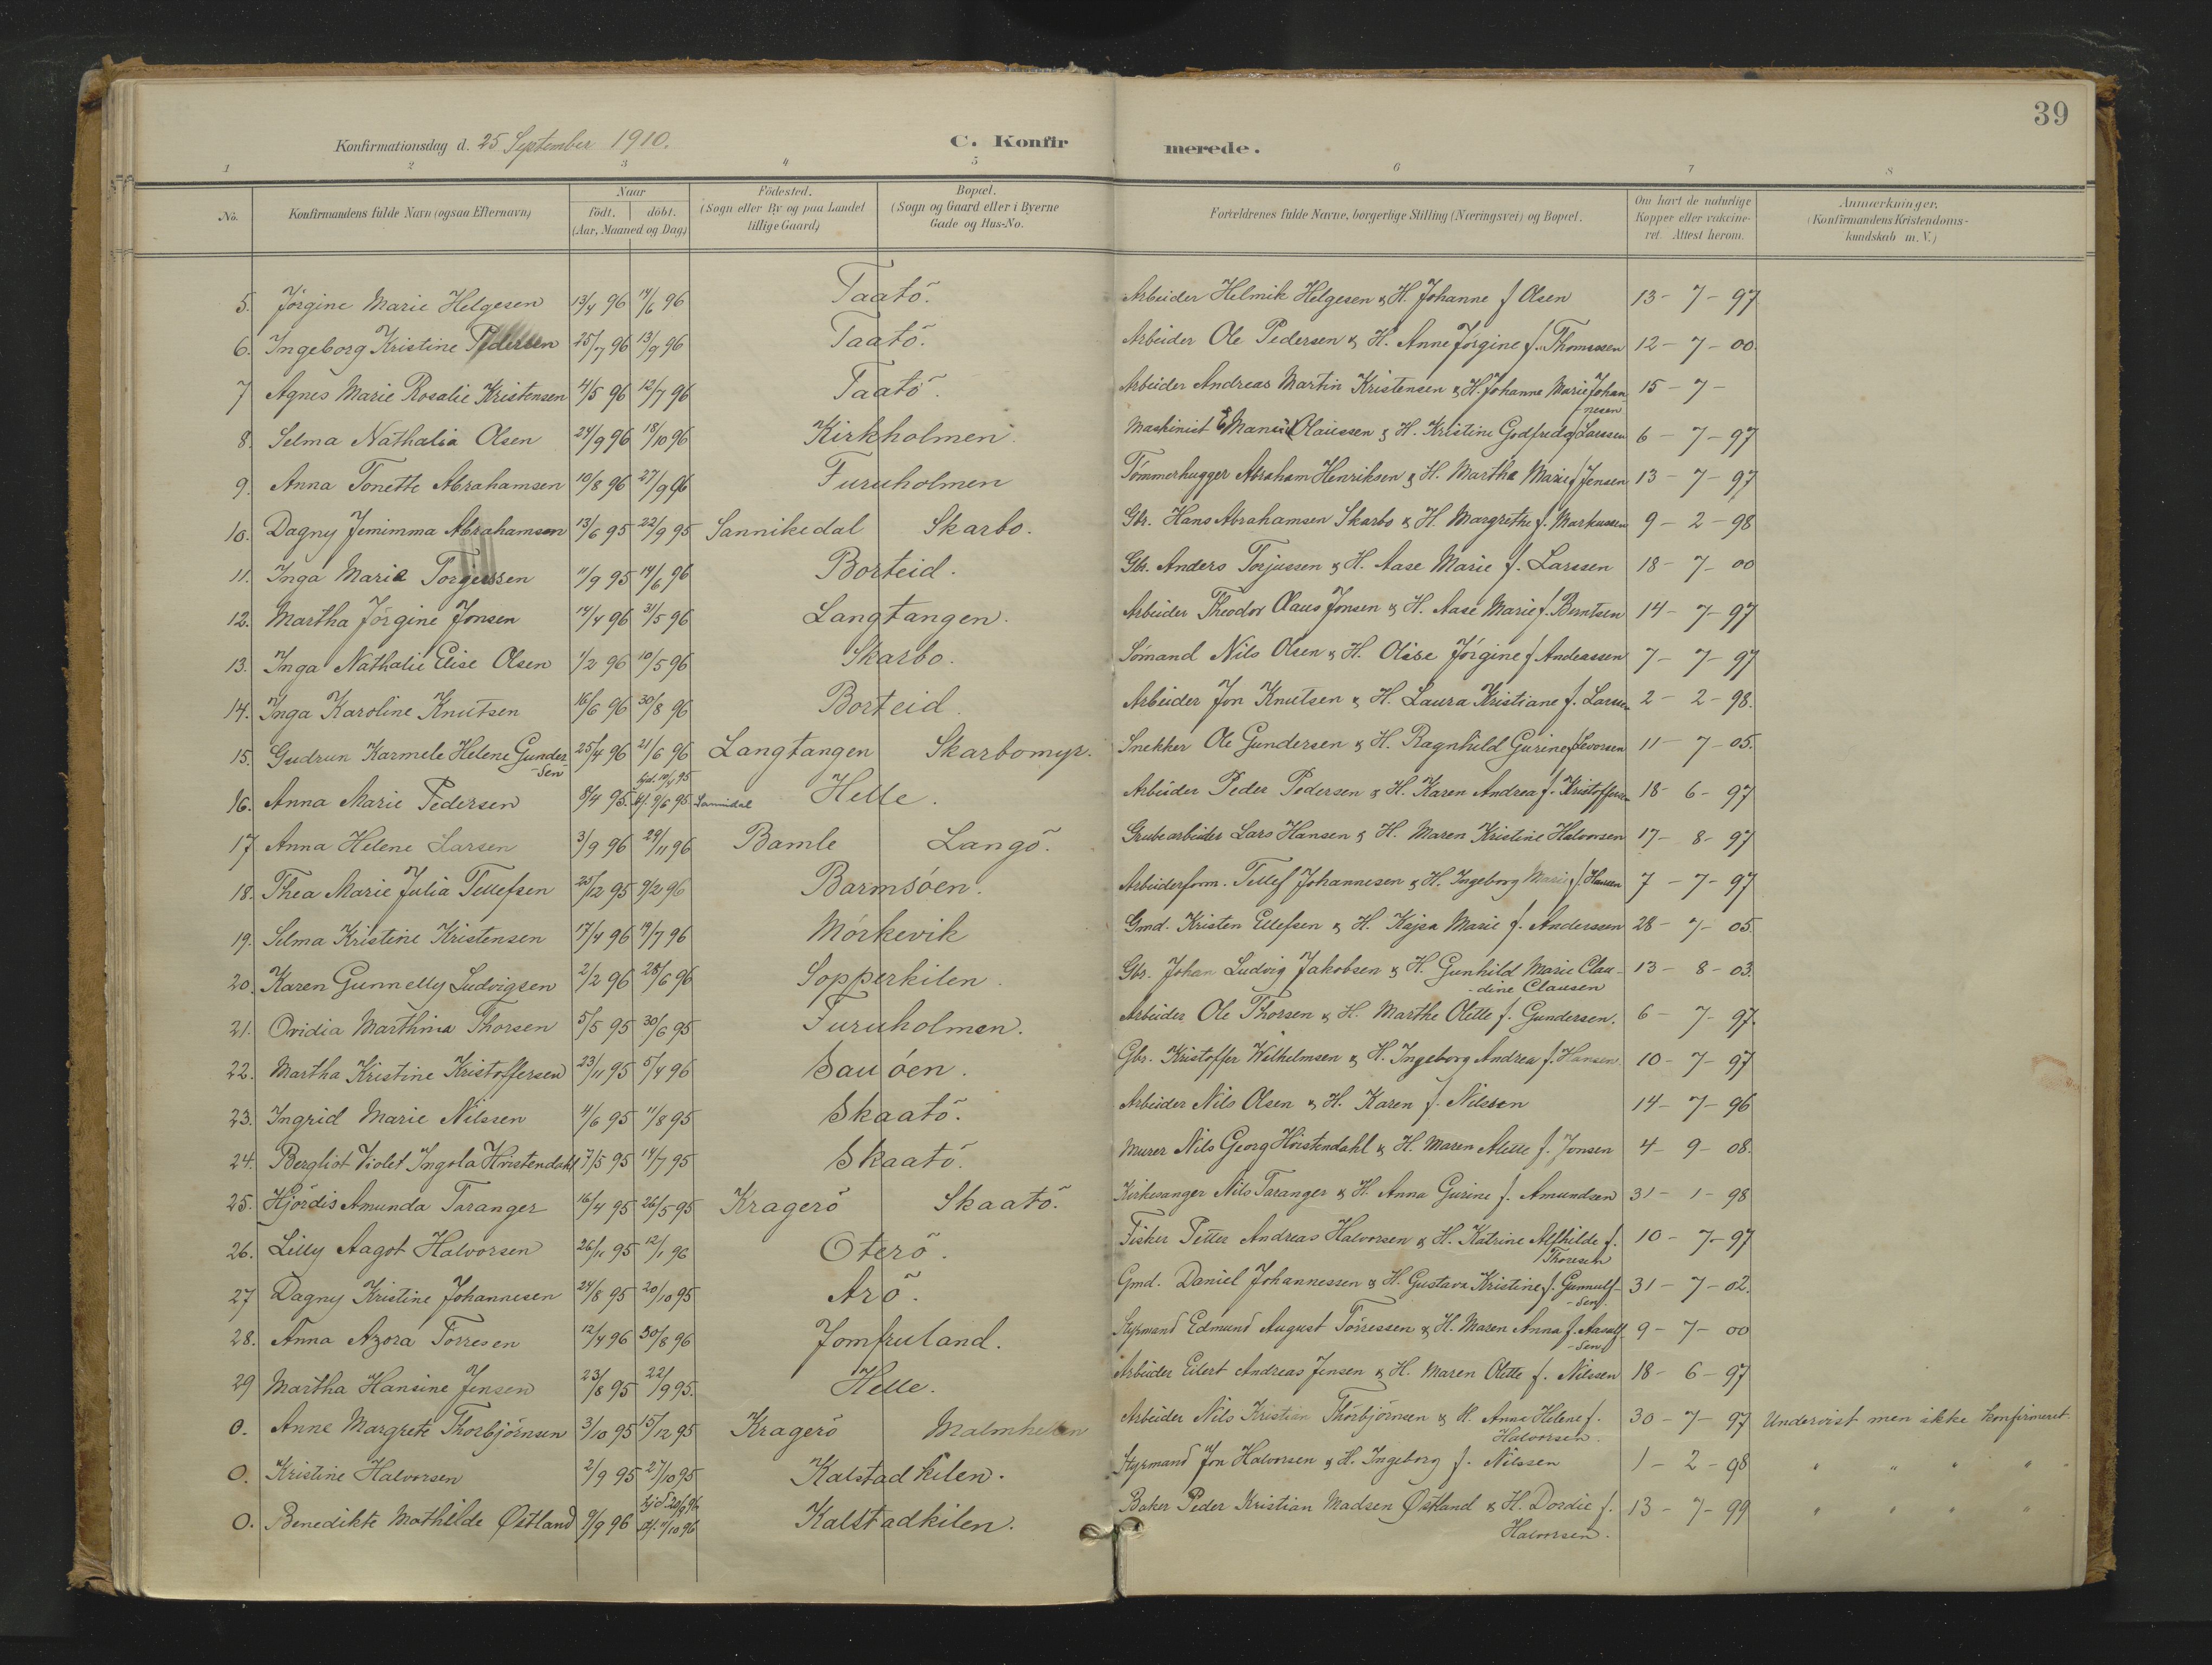 39
Konfirmationsdag d. 25 September 1910. C. Konfir merede.
1 2 3 4 5 6 7 8
No. Konfirmandens fulde Navn (ogsaa Efternavn) Naar födt. döbt. (Aar, Maaned og Dag) Födested. (Sogn eller By og paa Landet tillige Gaard) Bopæl. (Sogn og Gaard eller i Byerne Gade og Hus-No. Forældrenes fulde Navne, borgerlige Stilling (Næringsvei) og Bopæl. Om havt de naturlige Kopper eller vakcineret. Attest herom. Anmærkninger, (Konfirmandens Kristendomskundskab m. V.)
5. Jörgine Marie Helgesen 13/4 96 14/6 96 Taatö. Arbeider Helmik Helgesen & H. Johanne f Olsen 13 - 7 - 97
6. Ingeborg Kristine Pedersen 25/7 96 13/9 96 Taatö. Arbeider Ole Pedersen & H. Anne Jörgine f. Thomassen 12 - 7 - 00.
7 Agnes Marie Rosalie Kristensen 4/5 96 12/7 96 Taatö. Arbeider Andreas Martin Kristensen & H. Johanne Marie Johan
nesen 15 - 7 -
8. Selma Nathalia Olsen 24/9 96 18/10 96 Kirkholmen. Maskinist Olaussen & H. Kristine Godfreda f Larssen 6 - 7 - 97
9. Anna Tonette Abrahamsen 10/8 96 27/9 96 Furuholmen Tömmerhugger Abraham Henriksen & H. Martha Marie f Jensen 13 - 7 - 97
10. Dagny Jemimma Abrahamsen 13/6 95 22/9 95 Sannikedal Skarbo. Gbr. Hans Abrahamsen Skarbo & H. Margrethe f. Markussen 9 - 2 - 98
11. Inga Marie Torgerssen 11/9 95 14/6 96 Borteid. Gbr. Anders Torjussen & H. Aase Marie f. Larssen 18 - 7 - 00
12. Martha Jörgine Jonsen 14/4 96 31/5 96 Langtangen. Arbeider Theodor Olaus Jonsen & H. Aase Marie f. Berntsen 14 - 7 - 97
13. Inga Nathalie Elise Olsen 1/2 96 10/5 96 Skarbo. Sömand Nils Olsen & H. Olise Jörgine f Andeassen 7 - 7 - 97
14. Inga Karoline Knutsen 16/6 96 30/8 96 Borteid. Arbeider Jon Knutsen & H. Laura Kristiane f. Larsen 2 - 2 - 98.
15. Gudrun Karmele Helene Gunder-
-sen 25/4 96 21/6 96 Langtangen Skarbomyr. Snekker Ole Gundersen & H. Ragnhild Gurine f Levorsen 11 - 7 - 05.
16. Anna Marie Pedersen 8/4 95. hjd. 10/4 95
9/6 95 Sannidal Helle. Arbeider Peder Pedersen & H. Karen Andrea f. Kristoffersen 18 - 6 - 97
17 Anna Helene Larsen 3/9 96 29/11 96 Bamle Langö. Grubearbeider Lars Hansen & H. Maren Kristine Halvorsen 17 - 8 - 97
18. Thea Marie Julia Tellefsen 25/12 95 9/2 96 Barmsöen. Arbeiderform. Tellef Johannesen & H. Ingeborg Marie f. Hansen 7 - 7 - 97
19. Selma Kristine Kristensen 17/4 96 19/7 96 Mörkevik Gmd. Kristen Ellefsen & H. Kajsa Marie f. Anderssen 28 - 7 - 05.
20. Karen Gunnelly Ludvigsen 2/2 96 28/6 96 Sopperkilen. Gbr. Johan Ludvig Jakobsen & H. Gunhild Marie Clau-
-dine Clausen 13 - 8 - 03.
21. Ovidia Marthina Thorsen 5/5 95 30/6 95 Furuholmen. Arbeider Ole Thorsen & H. Marthe Olette f. Gundersen. 6 - 7 - 97.
22. Martha Kristine Kristoffersen 23/11 95 5/4 96 Sauöen. Gbr. Kristoffer Wilhelmsen & H. Ingeborg Andrea f. Hansen. 10 - 7 - 97
23. Ingrid Marie Nilssen 4/6 95 11/8 95 Skaatö. Arbeider Nils Olsen & H. Karen f. Nilssen 14 - 7 - 96
24. Bergliot Violet Ingola Hvistendahl 7/5 95 14/7 95 Skaatö. Murer Nils Georg Hvistendahl & H. Maren Alette f. Jonsen 4 - 9 - 08.
25. Hjördis Amunda Taranger 16/4 95 26/5 95 Kragerö Skaatö. Kirkesanger Nils Taranger & H. Anna Gurine f. Amundsen 31 - 1 - 98
26. Lilly Aagot Halvorsen 26/11 95 12/1 96 Oterö. Fisker Petter Andreas Halvorsen & H. Katrine Alfhilde f.
Thoresen 10 - 7 - 97
27 Dagny Kristine Johannesen 24/8 95 20/10 95 Arö. Gmd. Daniel Johannessen & H. Gustava Kristine f. Gunnulf-
-sen. 31 - 7 - 02.
28. Anna Azora Torresen 12/4 96 30/8 96 Jomfruland. Styrmand Edmund August Törressen & H. Maren Anna f. Aasulf-
-sen 9 - 7 - 00
29 Martha Hansine Jensen 23/8 95 22/9 95. Helle. Arbeider Eilert Andreas Jensen & H. Maren Olette f. Nilssen 18 - 6 - 97
0. Anne Margrete Thorbjörnsen 3/10 95 15/12 95 Kragerö Malmhellen Arbeider Nils Kristian Thorbjörnsen & H. Anne Helene f.
Halvorsen. 30 - 7 - 97 Undervist men ikke konfirmeret.
0. Kristine Halvorsen 2/9 95 27/10 95 Kalstadkilen. Styrmand Jon Halvorsen & H. Ingeborg f. Nilssen 1 - 2 - 98 " " " "
0. Benedikte Mathilde Østland 9/9 96 hjd 20/9 96
stf. 4/10 96 Kalstadkilen. Baker Peder Kristian Madsen Østland & H. Dordie f.
Halvorsen. 13 - 7 - 99 " " " "